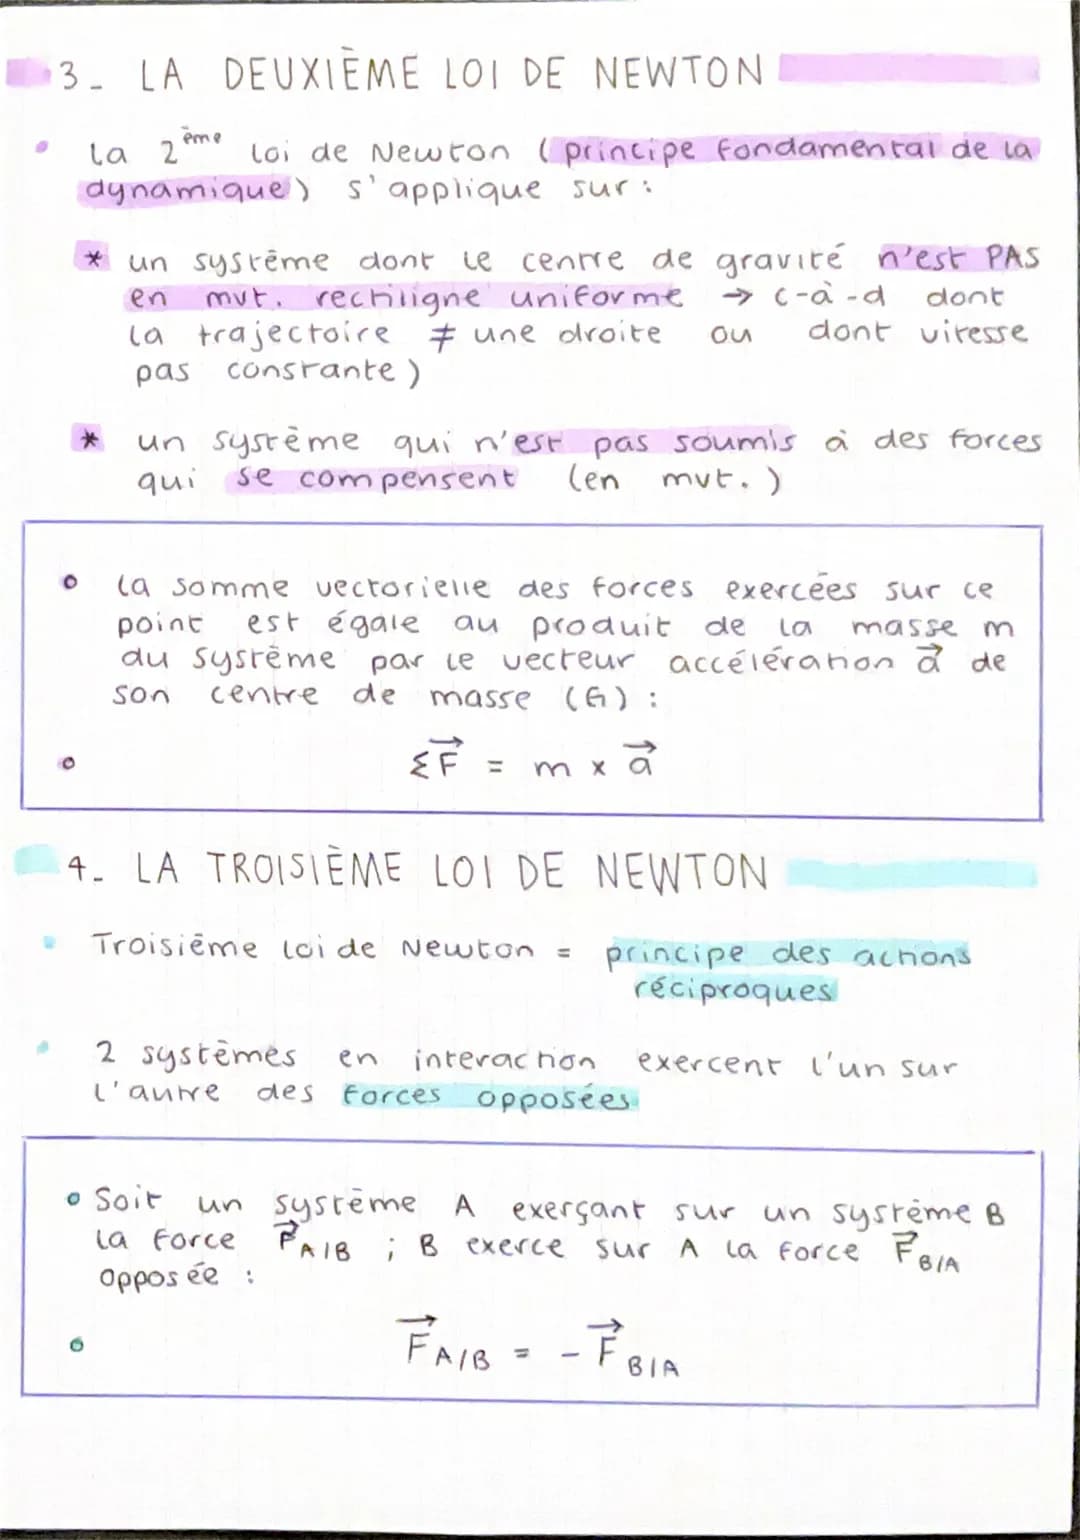 3- LA DEUXIÈME LOI DE NEWTON
La 2ème loi de Newton (principe fondamental de la
dynamique) s'applique sur :
* un système dont le centre de gravité n'est PAS
en mvt. rectiligne uniforme → c-à-d dont
la trajectoire ≠ une droite ou dont vitesse
pas constante)
* un système qui n'est pas soumis à des forces
qui se compensent (en mvt.)
La somme vectorielle des forces exercées sur ce
point est égale au produit de la masse m
du système par le vecteur accélération a⃗ de
son centre de masse (G) :
ΣF⃗ = m x a⃗
4- LA TROISIÈME LOI DE NEWTON
Troisième loi de Newton = principe des actions
réciproques
2 systèmes en interaction exercent l'un sur
l'autre des forces opposées
Soit un système A exerçant sur un système B
la force F⃗ A/B ; B exerce sur A la force F⃗ B/A
opposée :
F⃗ A/B = - F⃗ B/A